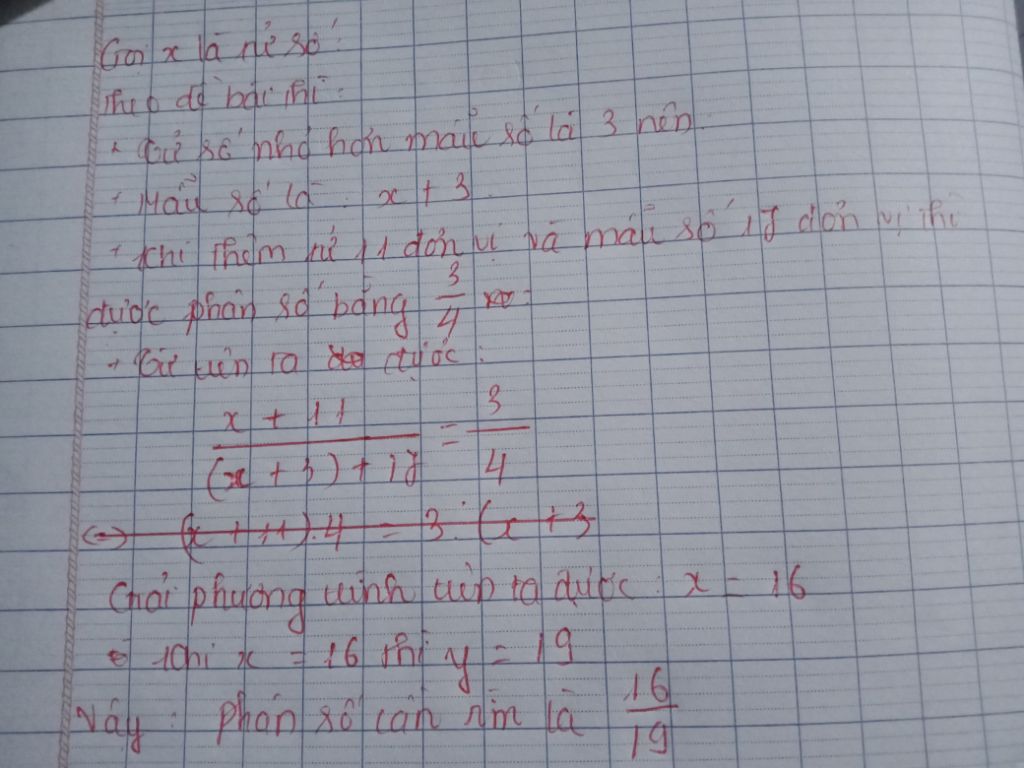 Gọi x là tử số:
Theo đề bài thì:
+ Tử số nhỏ hơn mẫu số là 3 nên
+ Mẫu số là: x + 3
+ Khi thêm tử 11 đơn vị và mẫu số 17 đơn vị thì
được phân số bằng 3/4
+ Từ trên ta được:
(x + 11)/((x + 3) + 17) = 3/4
<=> (x + 11).4 = 3.(x + 3
Giải phương trình trên ta được: x = 16
Khi x = 16 thì y = 19
Vậy: phân số cần tìm là 16/19